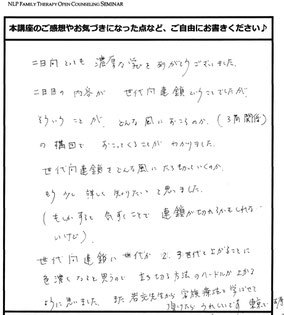 NLP FAMILY THERAPY OPEN COUNSELING SEMINAR
本講座のご感想やお気づきになった点など、ご自由にお書きください♪
二日間とても濃厚な学びをありがとうございました。
二日目の内容が 世代間連鎖ということでしたが、
そういうことが、どんな風におこるのか、(三角関係)
の構図で おこってくることがわかりました。
世代間連鎖をどんな風にたち切っていくのか、
もう少し詳しく知りたいと思いました。
(もしかすると 気づくことで 連鎖が切れるかもしれな
いけど)
世代間連鎖は世代が 2、3世代と上がるごとに
色濃くなると思うので 立ち切る方法のハードルが上がる
ように思いました。また 先生から家族療法を学ばせて
頂けたらうれしいです